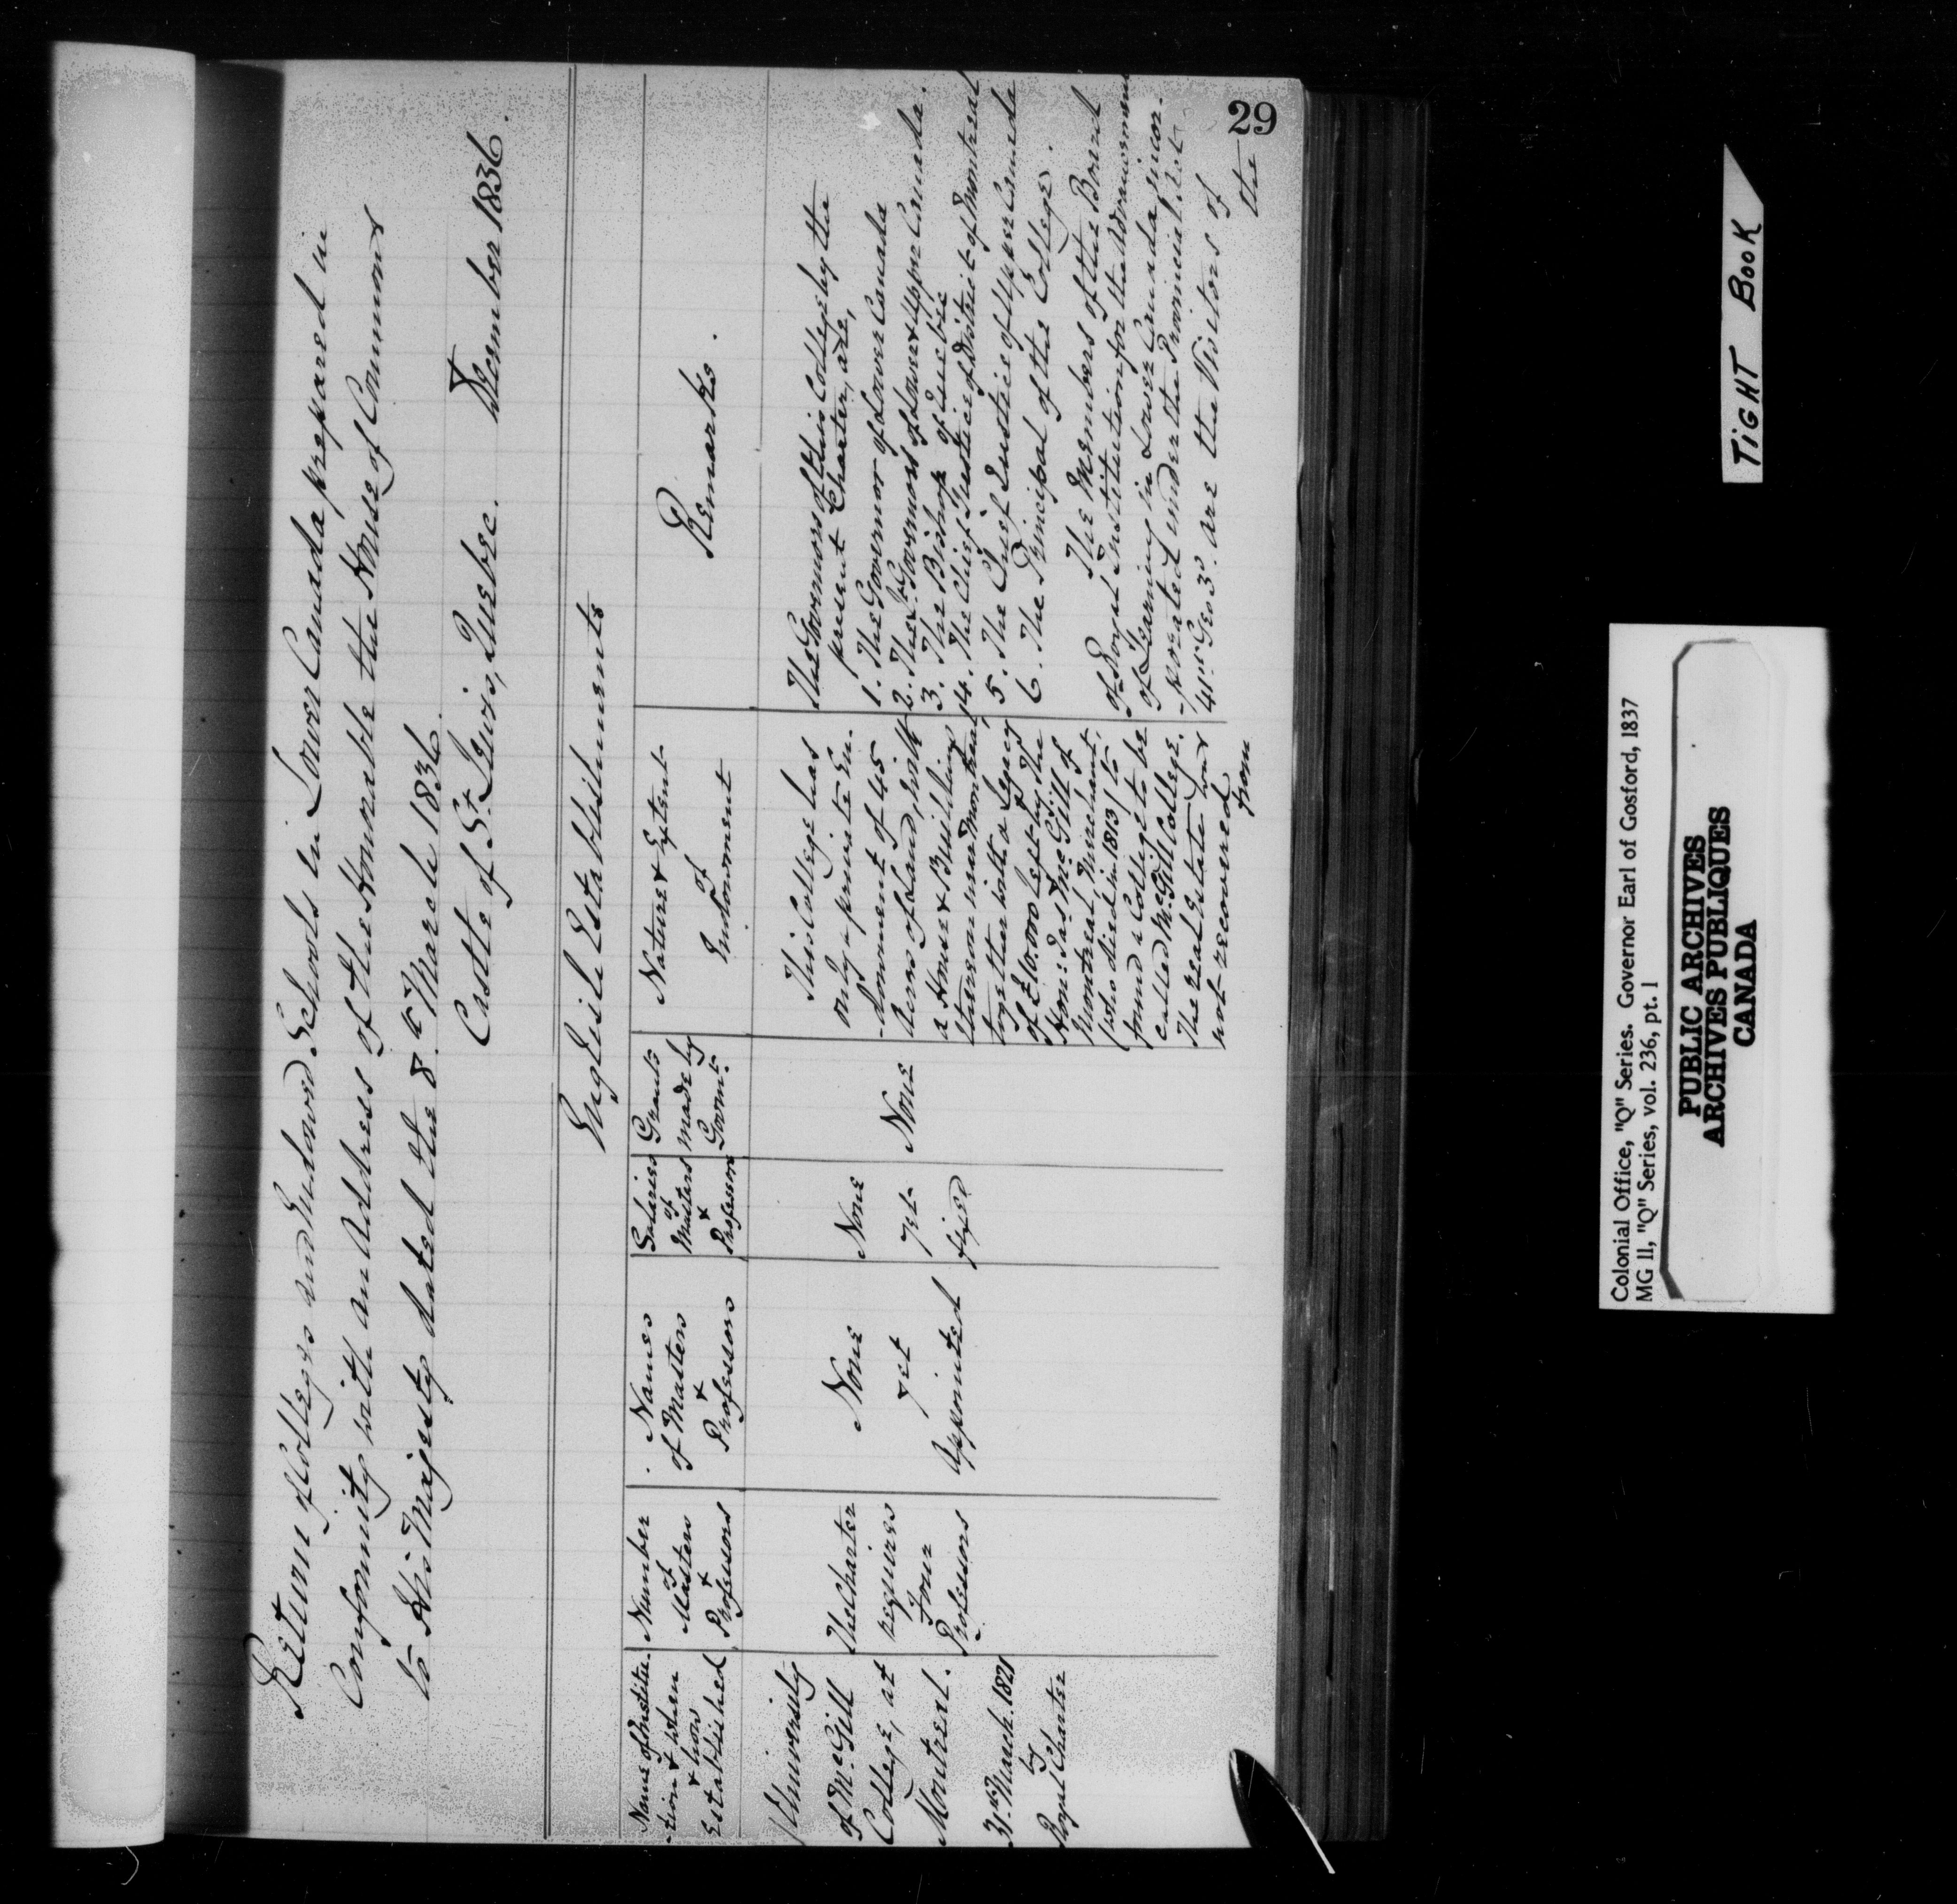 29
Return of Colleges and Endowed Schools in Lower Canada prepared in
Conformity with an Address of the Honorable the House of Commons
to His Majesty dated the 8.th March 1836.
Castle of St. Lewis, Quebec. December 1836.
English Establishments
Name of Institu-
-tion & when
& how
Established
Number
of
Masters
&
Professors
Names
of Masters
&
Professors
Salaries
of
Masters
&
Professors
Grants
made by
Governt.
Nature & Extent
of
Endowment
Remarks.
University
of McGill
College, at
Montreal.
31st March. 1821
by
Royal Charter
The Charter
requires
four
Professors
None
yet
appointed
None
yet
fixed
None
This College has
only a private En-
-dowment of 45
Acres of land, with
a House & Buildings
thereon near Montreal,
together with a legacy
of £10.000 left by the
Hon: Jas. McGill of
Montreal Merchant,
(who died in 1813) to
found a College to be
called McGill College.
The real Estate was
not recovered
from
The Governors of this College by the
present Charter, are,
1. The Governor of Lower Canada
2. The Lt. Governors of Lower & Upper Canada.
3. The Bishop of Quebec
4. The Chief Justice of District of Montreal
5. The Chief Justice of Upper Canada
6. The Principal of the College.
The Members of the Board
of Royal Institution for the Advancement
of Learning in Lower Canada, incor-
-porated under the Provincial Act
41st Geo 3d. are the Visitors of
the
TIGHT BOOK
Colonial Office, "Q" Series. Governor Earl of Gosford, 1837
MG 11, "Q" Series, vol. 236, pt. 1
PUBLIC ARCHIVES
ARCHIVES PUBLIQUES
CANADA